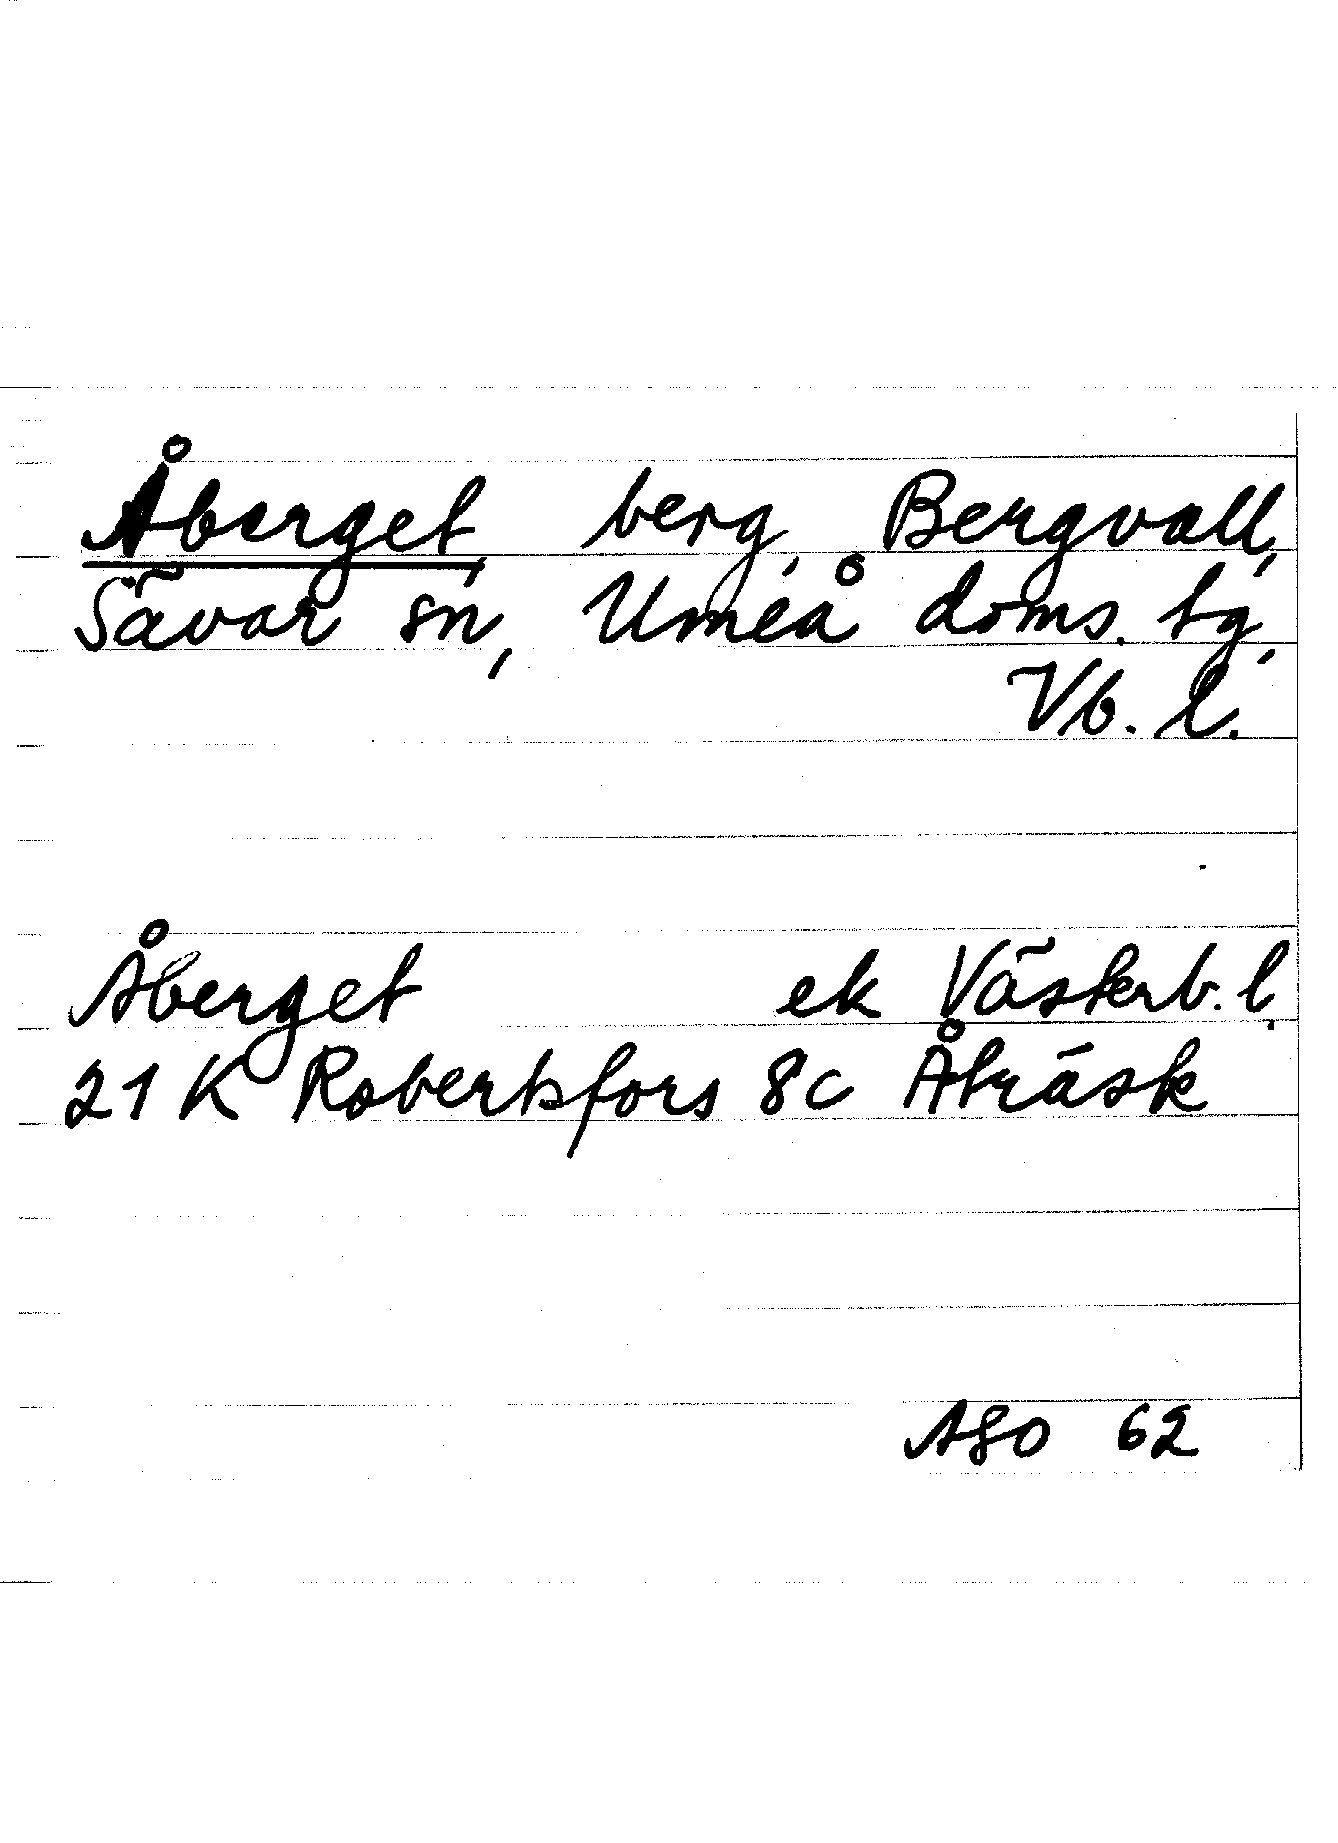 Åberget, berg, Bergvall,
Sävar sn, Umeå doms. tg,
Vb. l.
Åberget ek Västerb. l.
21 K Robertsfors 8c Åträsk
AGO 62